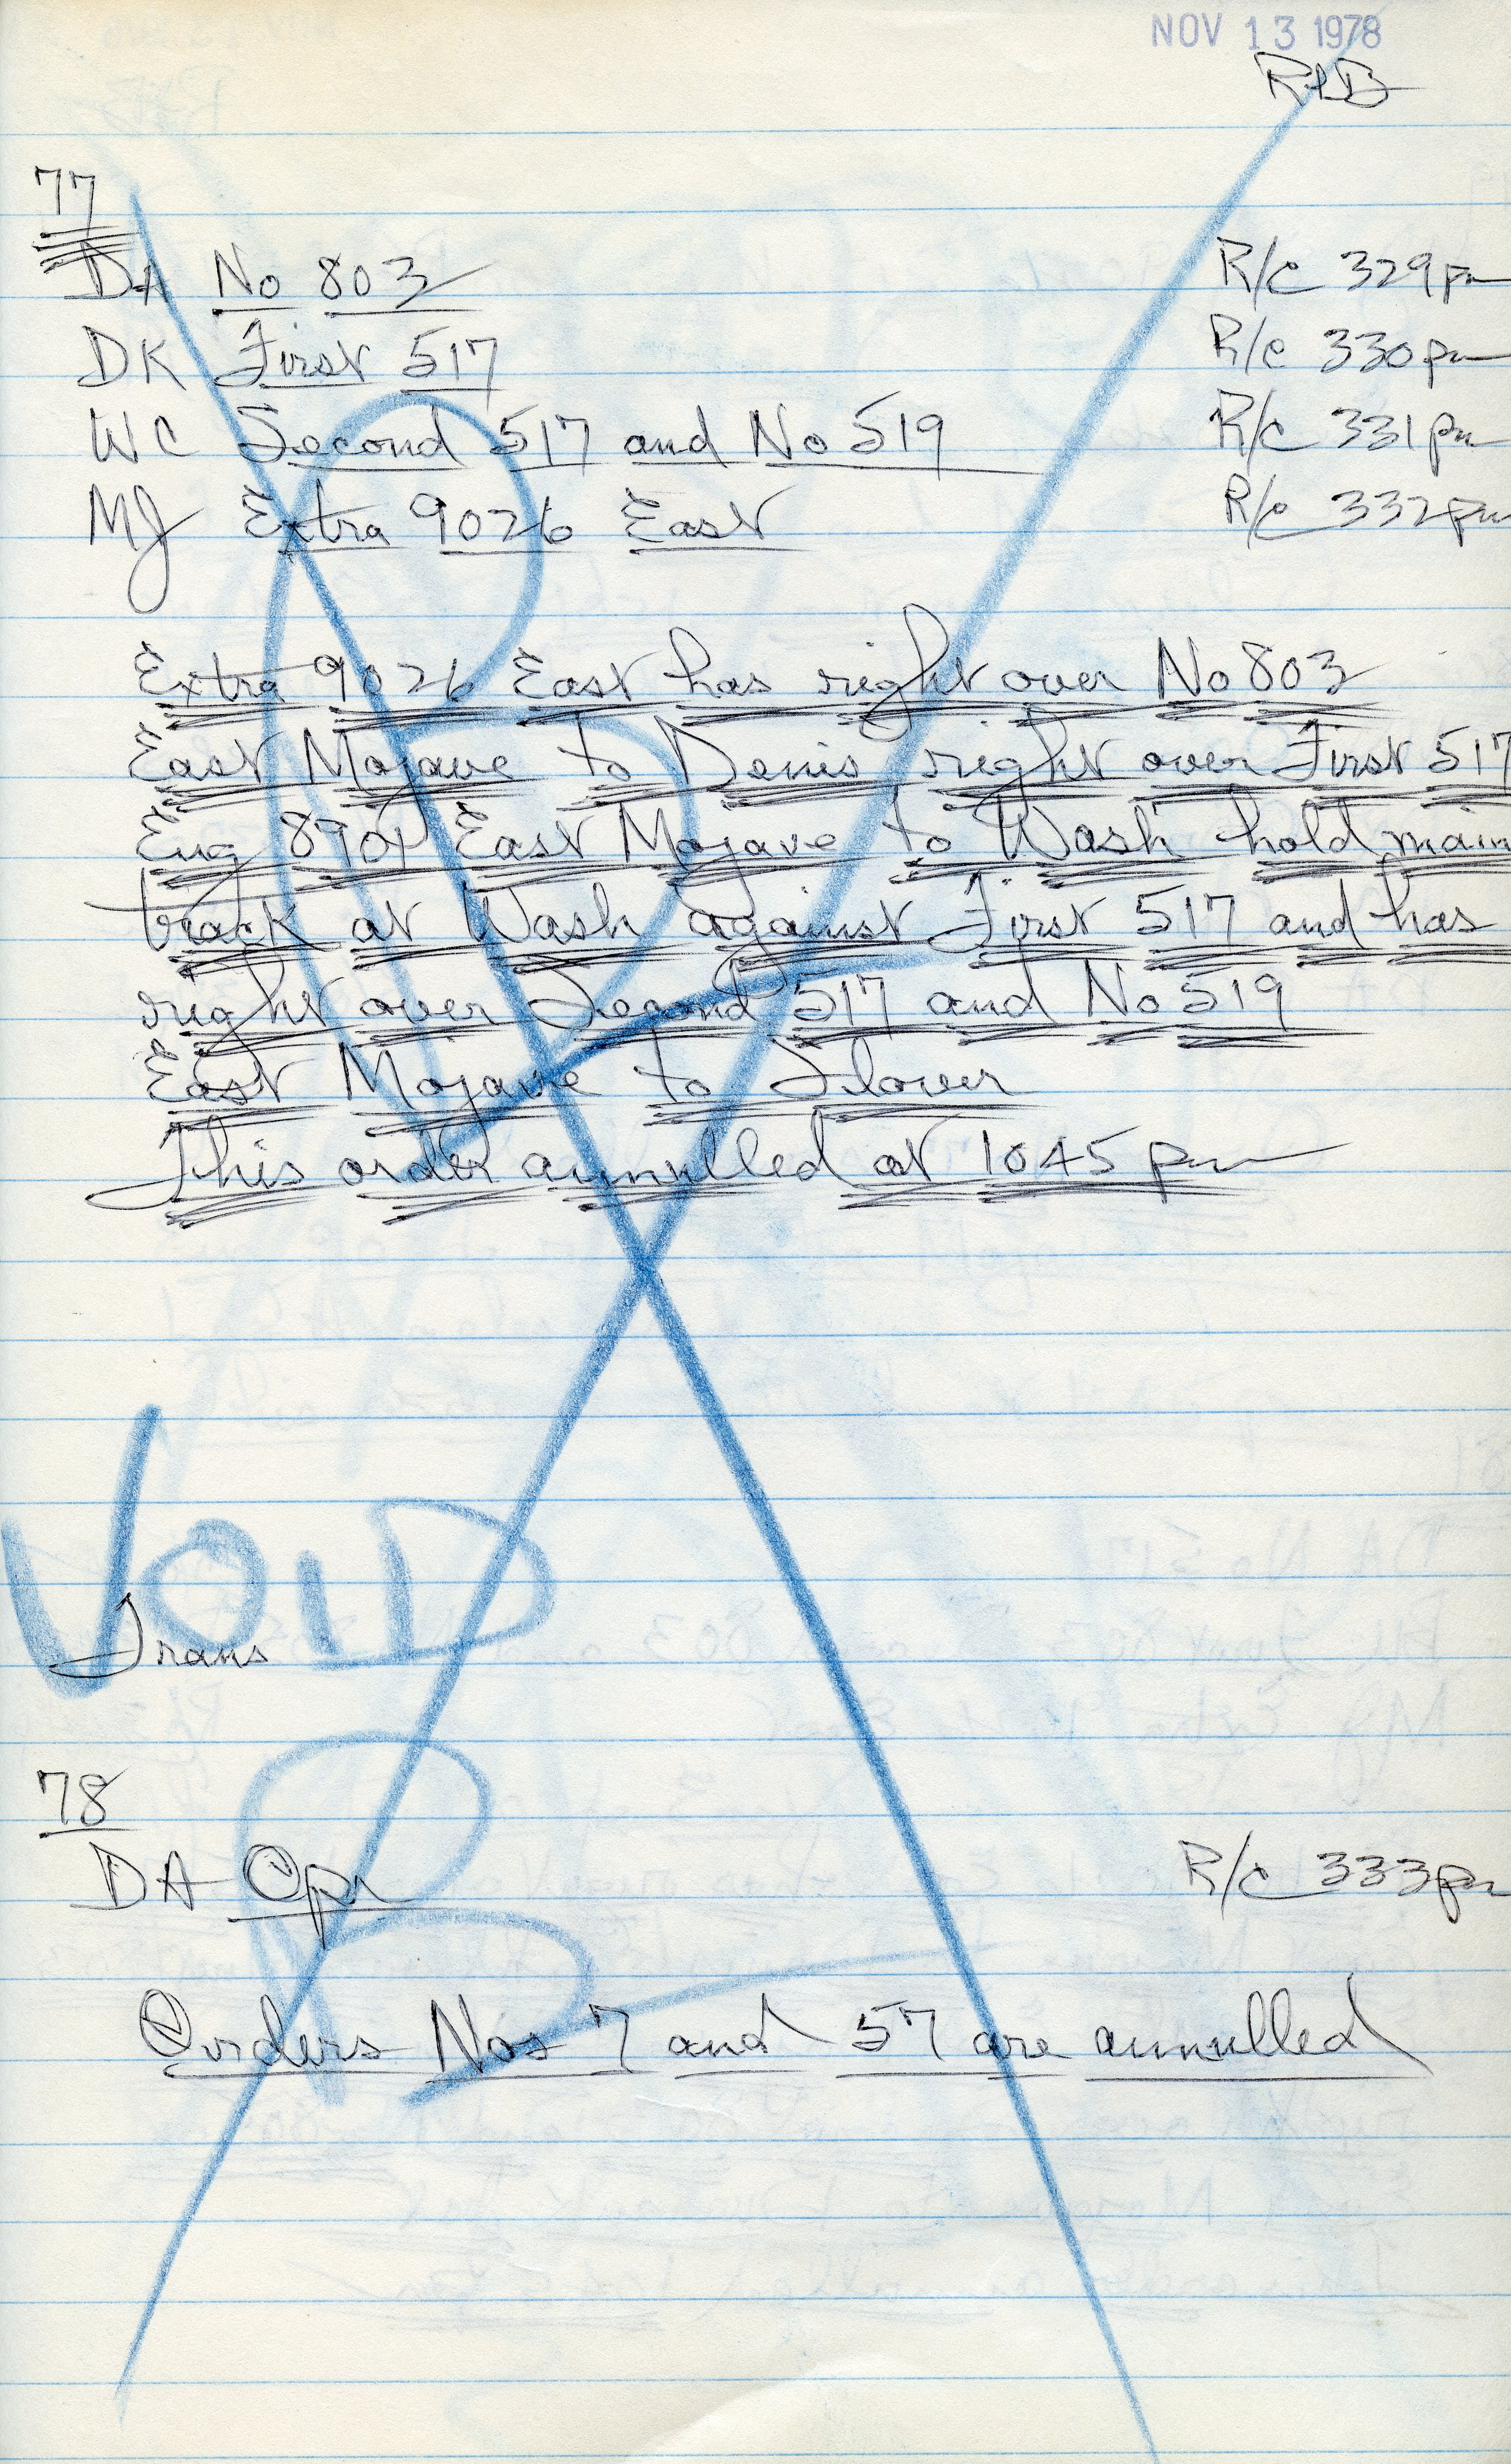 NOV 13 1978
RLB
77
DA No 803 R/c 329pm
DK First 517 R/c 330pm
WC Second 517 and No 519 R/c 331pm
MJ Extra 9026 East R/c 332pm
Extra 9026 East has right over No 803
East Mojave to Denis right over First 517
Eng East Mojave to Wash hold main
track at Wash against First 517 and has
right over Second 517 and No 519
East Mojave to Silover
This order annulled at 1045 pm
VOID
Trans
78
DA Opr R/c 333pm
Orders Nos 7 and 57 are annulled